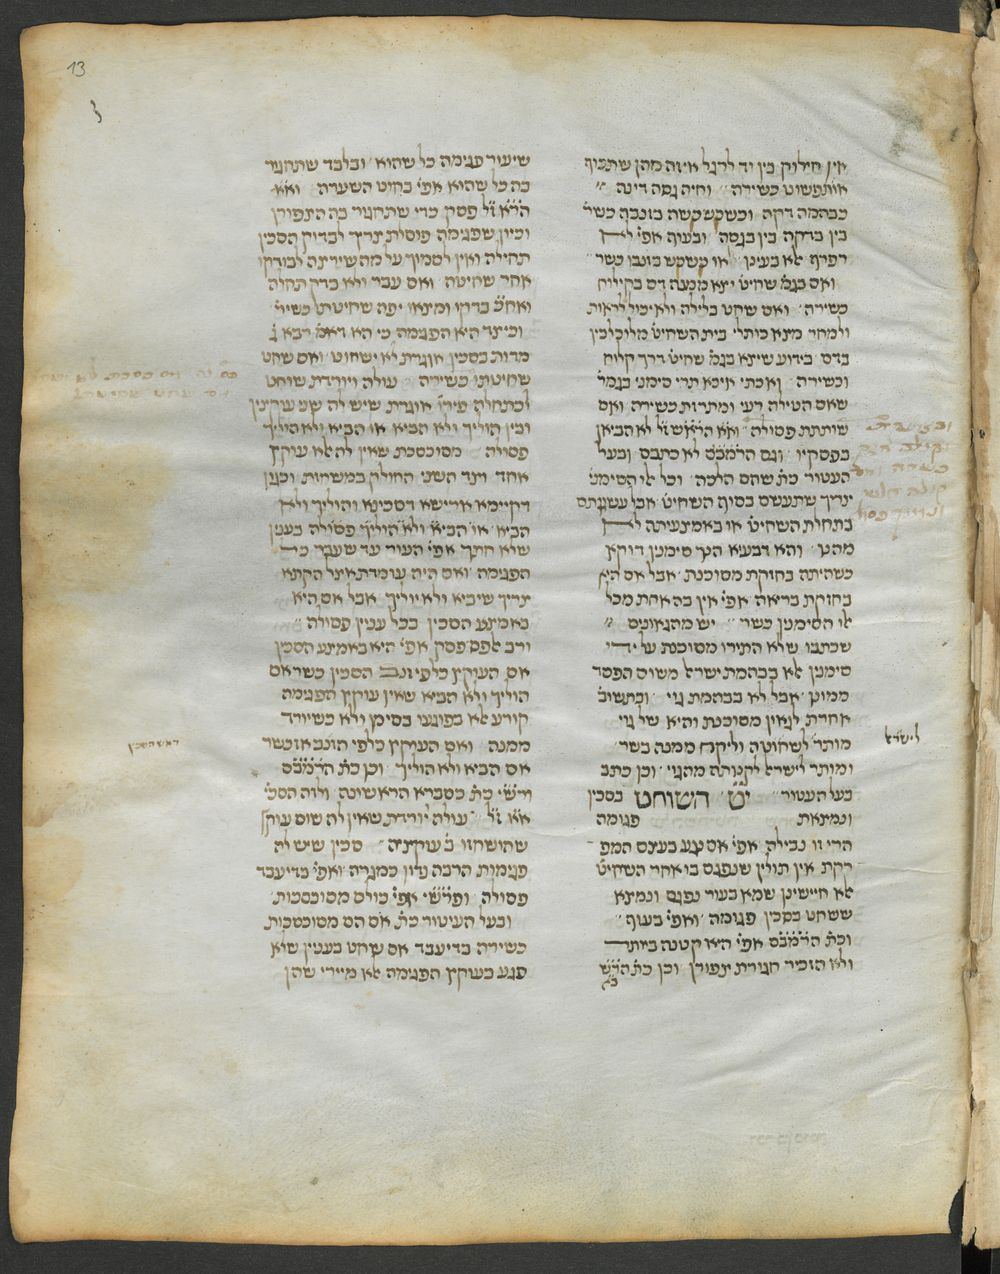 13
אין חילוק בין יד לרגל איזה מהן שתכוף
ותפשוט כשירה וחיה גסה דינה
כבהמה דקה וכשכשכשה בזנבה כשר
בין בדקה בין בגסה ובעוף אפי' לא
רפרף אלא בעינו או כשכש בזנבו כשר
ואם בגמ' שחיט' יצא ממנה דם בקילוח
כשירה ואם שחט בלילה ולא יכול לראות
ולמחר מצא כותלי בית השחיט' מלוכלכין
בדם בידוע שיצא בגמ' שחיט' דרך קלוח
וכשירה ואכתי איכא תרי סימני בגמר'
שאם הטילה רעי ומתרזת כשירה ואם
שותתת פסולה וא"א הרא"ש ז"ל לא הביאן
בפסקיו וגם הרמב"ם לא כתבם ובעל
העטור כת' שהם הלכה וכל אלו הסימני'
צריך שתעשם בסוף השחיט' אבל עשאתם
בתחלת השחיט' או באמצעיתה לא
מהני והא דבעיא הנך סימנין דוקא
כשהיתה בחזקת מסוכנת אבל אם היא
בחזקת בריאה אפי' אין בה אחת מכל
אלו הסימנין כשר יש מהגאונים
שכתבו שלא התירו מסוכנת על ידי
סימנין אלא בבהמת ישראל משום הפסד
ממונן אבל לא בבהמת גוי ובתשוב'
אחרת לגאון מסוכנת והיא של גוי
מותר לשחוטה וליקח ממנה בשר
ומותר לישראל לקנותה מהגוי וכן כתב
בעל העטור י"ט השוחט בסכין
ונמצאת פגומה
הרי זו נבילה אפי' אם נגע בעצם המפ
רקת אין תולין שנפגם בו אחר השחיט'
אלא חיישינן שמא בעור נפגם ונמצא
ששחט בסכין פגומה ואפי' בעוף
וכת' הרמב"ם אפי' היא קטנה ביותר
ולא הזכיר חגורת צפורן וכן כת' הרש"
ב"א
לישראל
שיעור פגימה כל שהוא ובלבד שתחגור
בה כל שהוא אפי' בחוט השערה וא"א
הרא"ש ז"ל פסק כדי שתחגור בה הצפורן
וכיון שפגימה פוסלת צריך לבדוק הסכין
תחילה ואין לסמוך על מה שירצה לבודקו
אחר שחיטה ואם עבר ולא בדק תחלה
ואח"כ בדקו ומצאו יפה שחיטתו כשיר'
וכיצד היא הפגימה כי הא דאמ' רבא ג'
מדות בסכין אוגרת לא ישחוט ואם שחט
שחיטתו כשירה עולה ויורדת שוחט
לכתחלה פירו' אוגרת שיש לה שני עוקצין
ובין הוליך ולא הביא או הביא ולא הוליך
פסולה מסוכסכת שאין לה אלא עוקץ
אחד וצד השני החולק במשחזת וכגון
דקיימא ארישא דסכינא והוליך ולא
הביא או הביא ולא הוליך פסולה בענין
שלא חתך אפי' העור עד שעבר כל
הפגימה ואם היה עומדת אצל הקתא
צריך שיביא ולא יוליך אבל אם היא
באמצע הסכין בכל ענין פסולה
ורב אלפס פסק אפי' היא באמצע הסכין
אם העוקץ כלפי זנב הסכין כשר אם
הוליך ולא הביא שאין עוקץ הפגימה
קורע אלא בפוגעו בסימן ולא כשיורד
ממנה ואם העוקץ כלפי הזנב אז כשר
אם הביא ולא הוליך וכן כת' הרמב"ם
ורש"י כת' כסברא הראשונה ולזה הסכי'
א"א ז"ל עולה יורדת שאין לה שום עוקץ
שהושחזו ב' עוקציה סכין שיש לה
פגימות הרבה נדון כמגרה ואפי' בדיעבד
פסולה ופרש"י אפי' כולם מסוכסכות
ובעל העיטור כת' אם הם מסוכסכות
כשירה בדיעבד אם שחט בענין שלא
פגע בעוקץ הפגימה אלא מיירי שהן